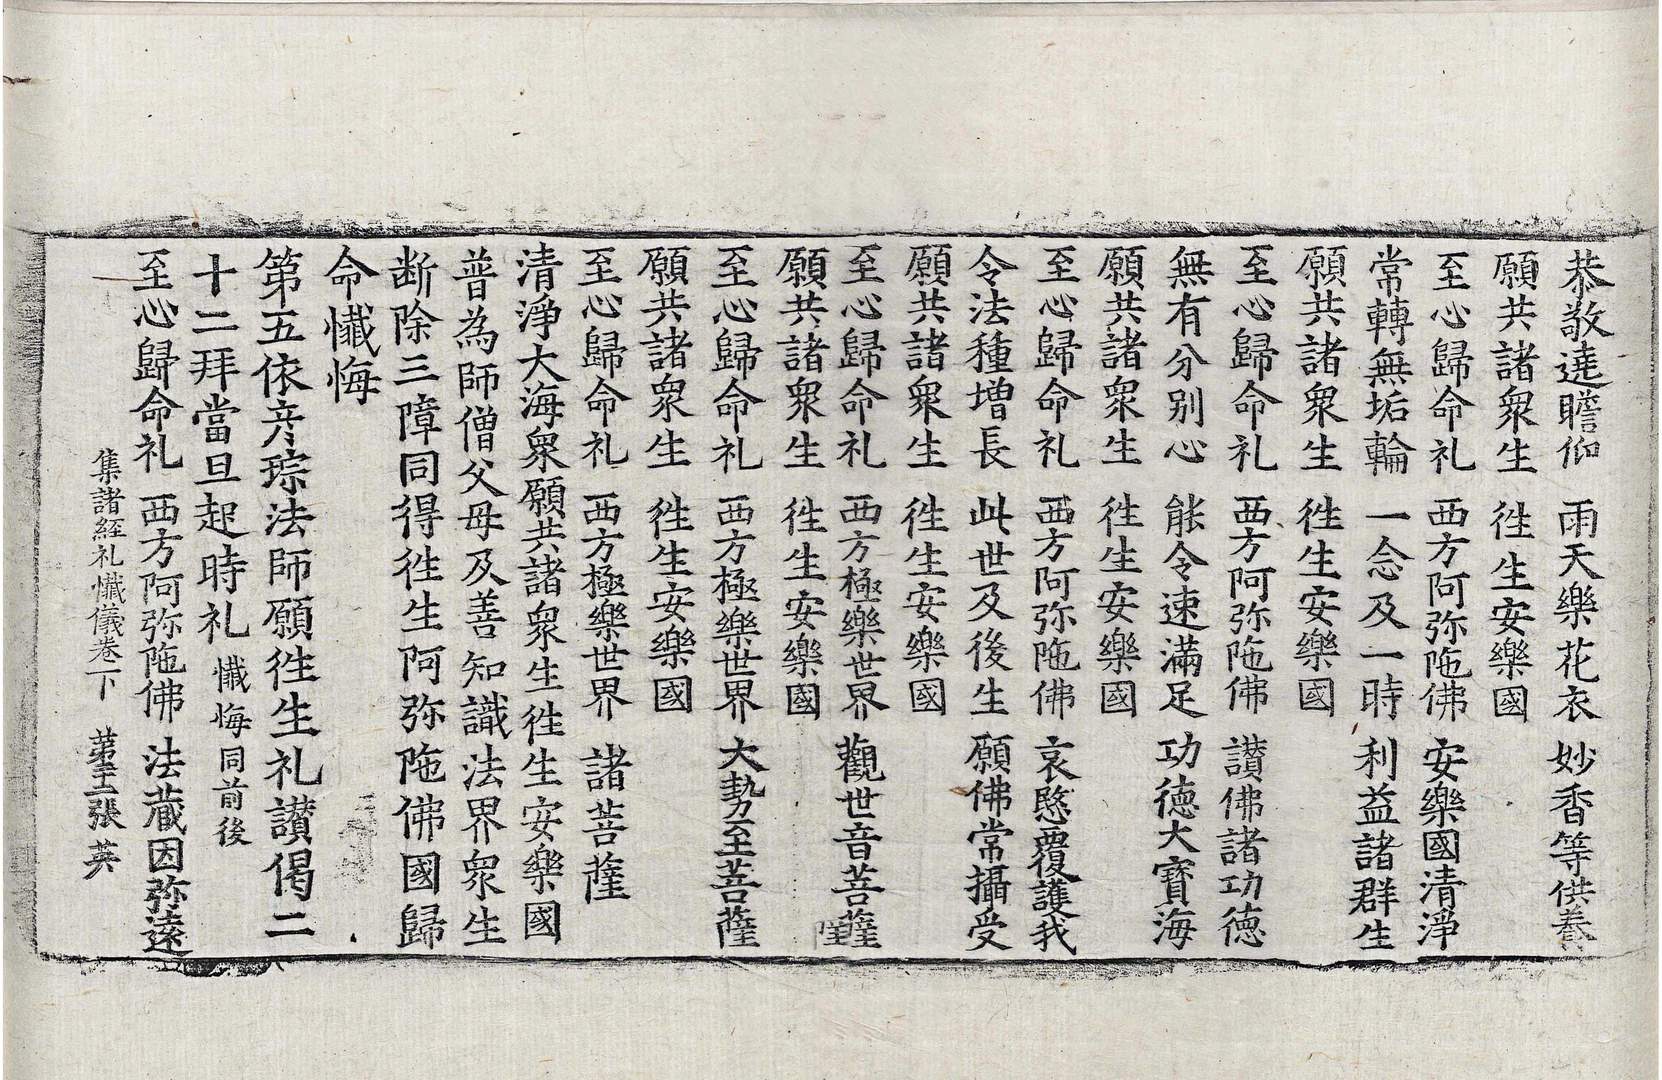 恭敬遶瞻仰　雨天樂花衣　妙香等供養
願共諸衆生　徃生安樂國
至心歸命礼　西方阿弥陁佛　安樂國清淨
常轉無垢輪　一念及一時　利益諸群生
願共諸衆生　徃生安樂國
至心歸命礼　西方阿弥陁佛　讃佛諸功德
無有分别心　能令速滿足　功德大寳海
願共諸衆生　徃生安樂國
至心歸命礼　西方阿弥陁佛　哀愍覆護我
令法種增長　此世及後生　願佛常攝受
願共諸衆生　徃生安樂國
至心歸命礼　西方極樂世界　觀世音菩薩
願共諸衆生　徃生安樂國
至心歸命礼　西方極樂世界　大勢至菩薩
願共諸衆生　徃生安樂國
至心歸命礼　西方極樂世界　諸菩薩
清淨大海衆願共諸衆生徃生安樂國
普為師僧父母及善知識法界衆生
断除三障同得徃生阿弥陁佛國歸
命懺悔
第五依彦琮法師願徃生礼讃偈二
十二拜當旦起時礼　懺悔同前後
至心歸命礼　西方阿弥陁佛　法藏因弥遠
集諸經礼懺儀卷下　張　英